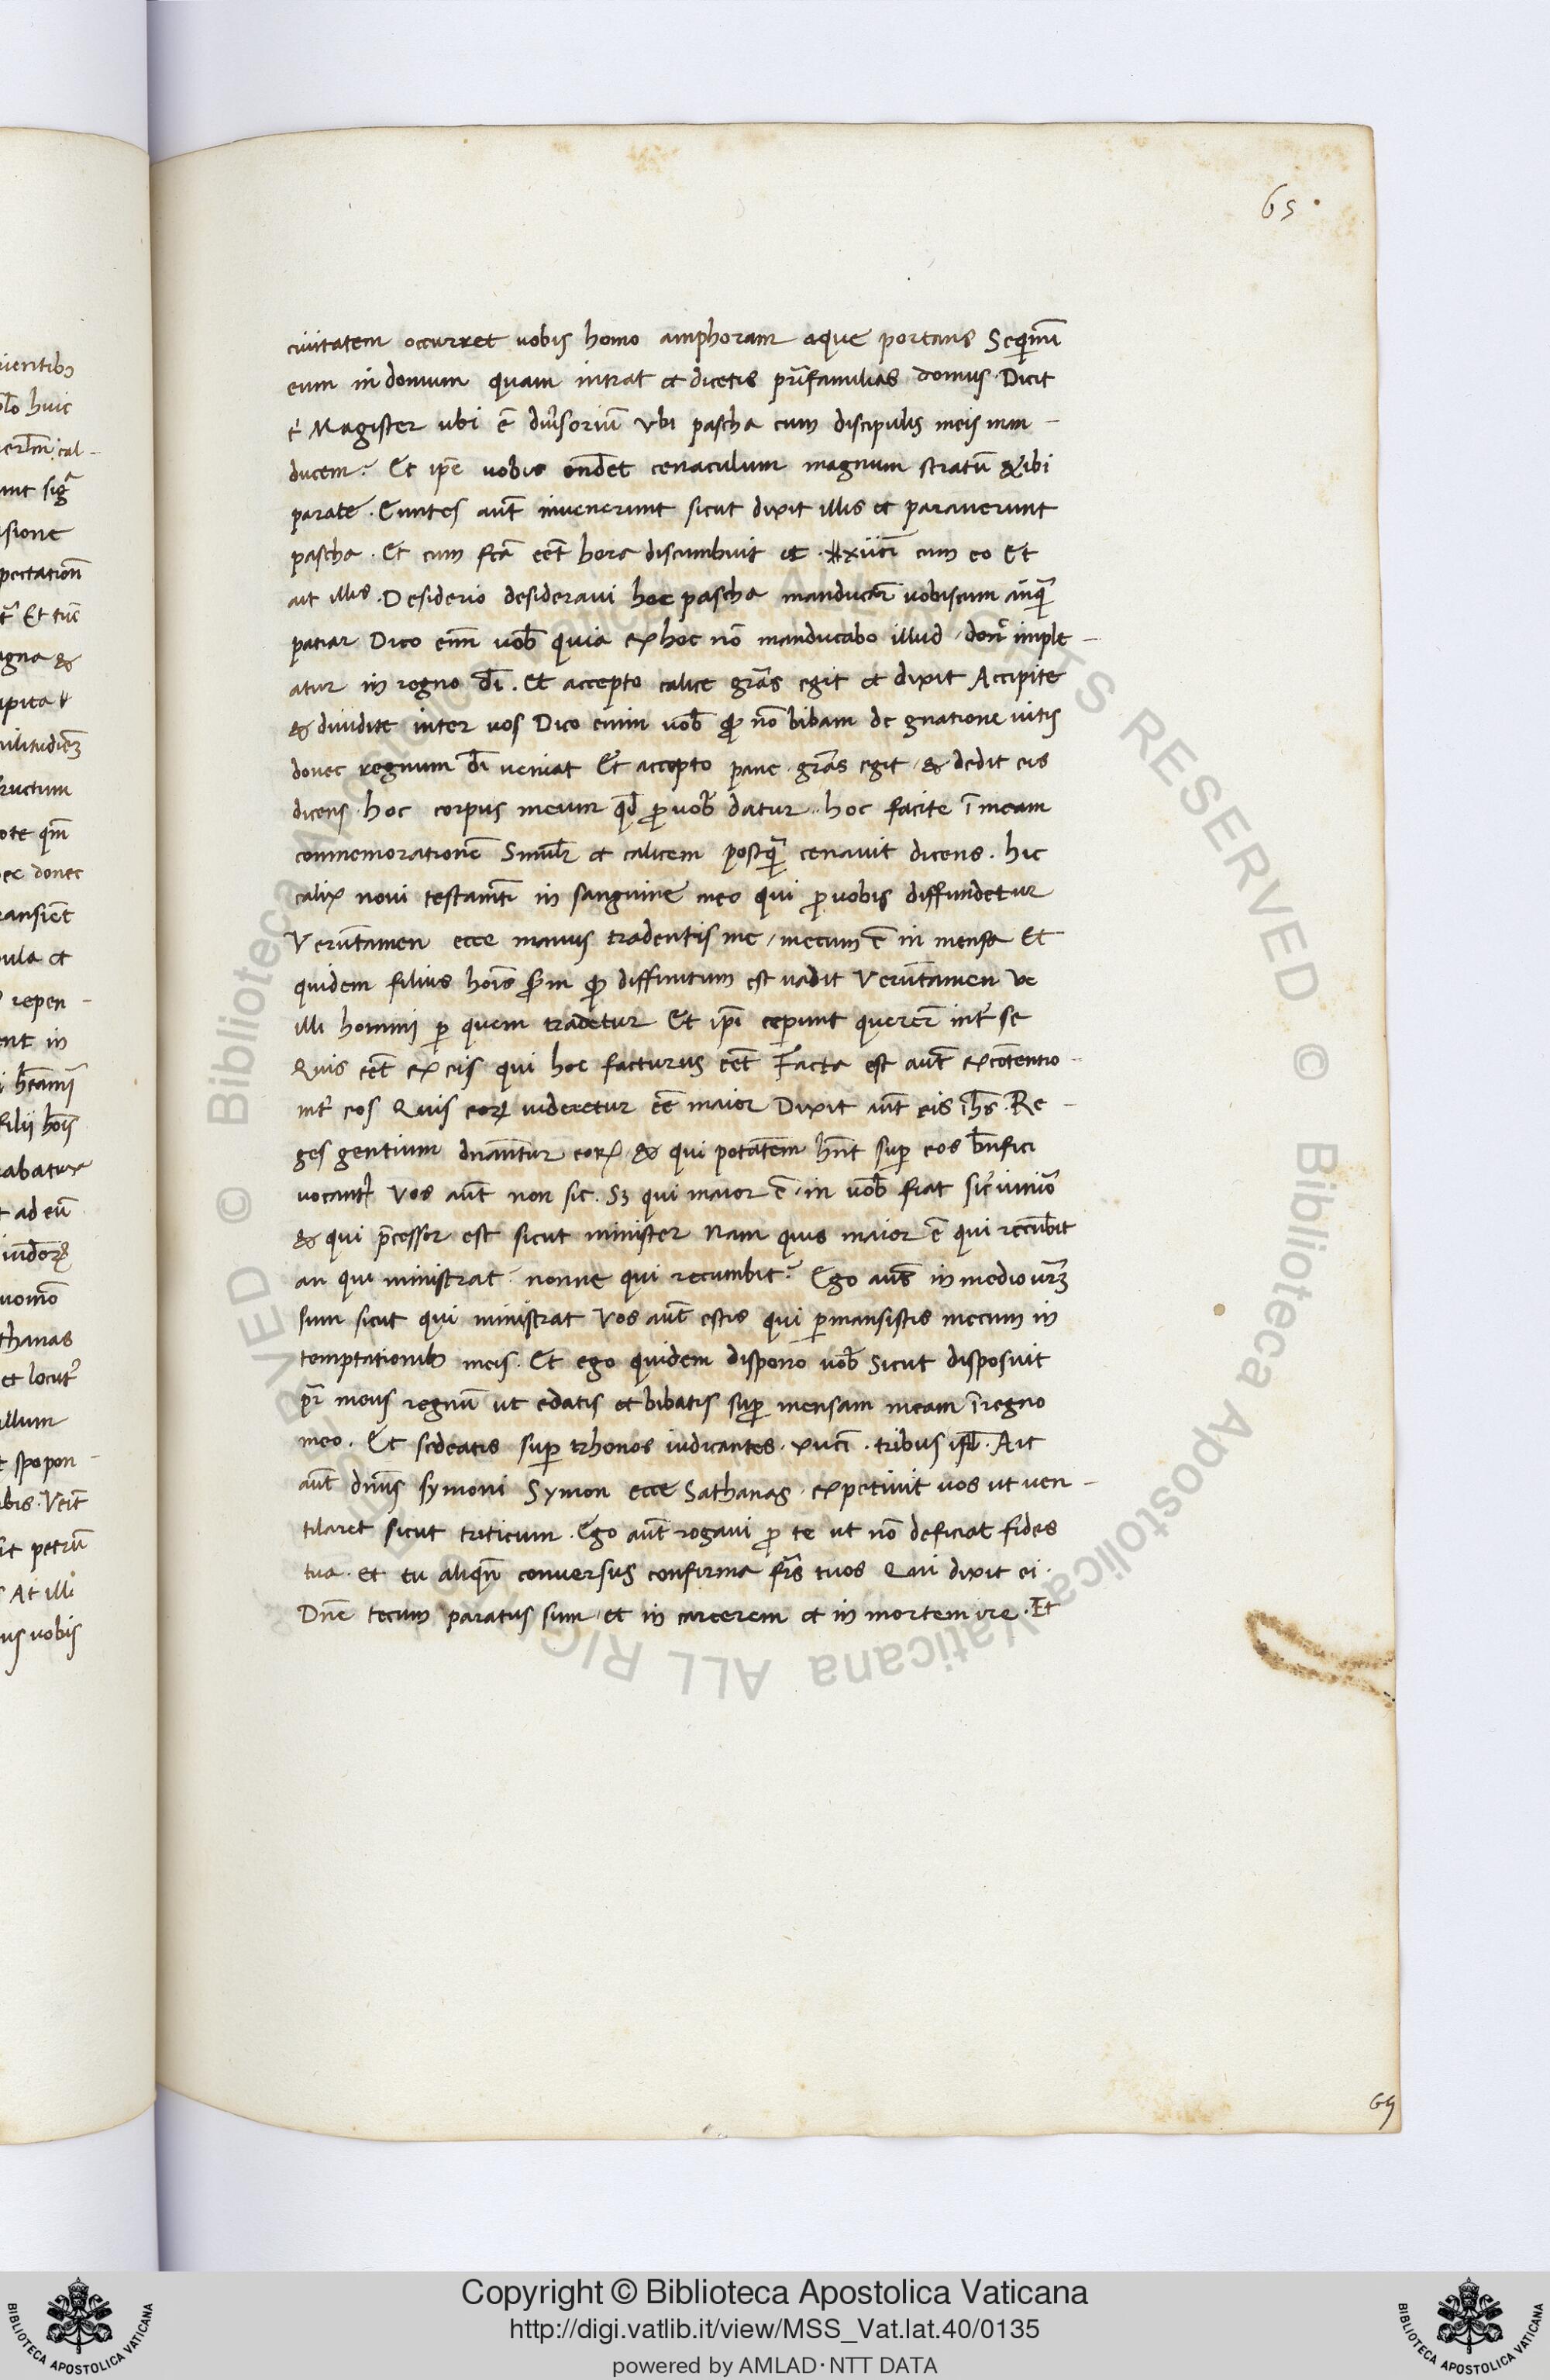 65.
ciuitatem occurret uobis homo amphoram aque portans Seqimĩ
eum in domum quam intrat et dicetis pr̃ifamilias domus. Dicit
t' Magister ubi ẽ diũsoriũ Vbi pascha cum discipulis meis mn-
ducem? Et ip̃e uobis ond̃et cenaculum magnum stratũ & ibi
parate. Euntes aũt inuenerunt sicut dixit illis et parauerunt
pascha. Et cum fcã eẽt hora discumbuit et xiicĩ cum eo Et
ait illis. Desiderio desideraui hoc pascha manducar̃ uobiscum añq̃
patiar Dico eñi uob̃ quia ex hoc nõ manducabo illud donc̃ imple-
atur in regno dĩ. Et accepto calice grãs egit et dixit Accipite
& diuidite inter uos Dico enim uob̃ q̃ nõ bibam de gñatione uitis
donec regnum dĩ ueniat Et accepto pane grãs egit & dedit eis
dicens hoc corpus meum qd̃ p uob̃ datur hoc facite ĩ meam
commemorationẽ Simul̃r et calicem postq̃ cenauit dicens. hic
calix noui testam̃ti in sanguine meo qui p uobis diffundetur
Verũtamen ecce manus tradentis me / mecum ẽ in mensa Et
quidem filius hoĩs sc̃dm q̃ diffinitum est uadit Verũtamen Ve
illi homini p quem tradetur Et ip̃i ceperunt querer̃ int̃ se
Quis eẽt ex eis qui hoc facturus eẽt Facta est aũt ex cõtentio
int̃ eos Quis eoꝝ uideretur eẽ maior Dixit aũt eis ihs̃. Re-
ges gentium dñant̃ur eoꝝ & qui potãtem hñt sup eos bñfici
uocant̃ Vos aũt non sic. Sꝫ qui maior ẽ in uob̃ fiat sic̃ iuniõ
& qui p̃cessor est sicut minister Nam quis maior ẽ qui recũbit
an qui ministrat? nonne qui recumbit? Ego aũt in medio ur̃m
sum sicut qui ministrat Vos aũt estis qui pmansistis mecum in
temptationib meis. Et ego quidem dispono uob̃ Sicut disposuit
pr̃ meus regnũ ut edatis et bibatis sup mensam meam ĩ regno
meo. Et sedeatis sup thronos iudicantes. xiicĩ. tribus isrl̃. Ait
aũt dñus symoni Symon ecce Sathanas expetiuit uos ut uen-
tilaret sicut triticum. Ego aũt rogaui p te ut nõ deficiat fides
tua. et tu aliqñ conuersus confirma fr̃s tuos Qui dixit ei.
Dñe tecum paratus sum et in carcerem et in mortem ire. Et
65
Copyright © Biblioteca Apostolica Vaticana
http://digi.vatlib.it/view/MSS_Vat.lat.40/0135
powered by AMLAD·NTT DATA